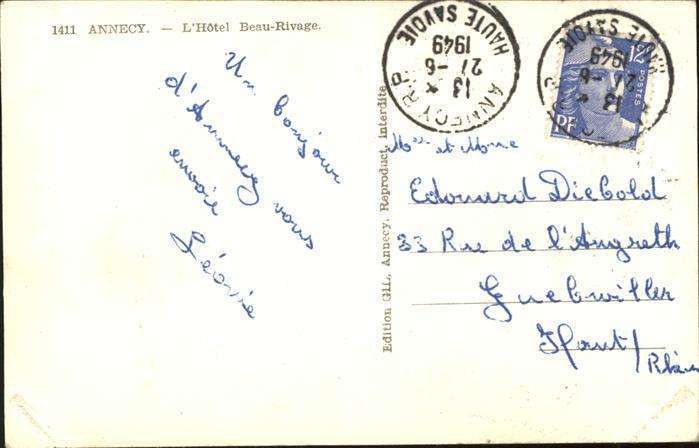 1411 ANNECY. — L'Hôtel Beau-Rivage.
Un bonjour
d'Annecy vous
envoie
Léonie
Edition GIL, Annecy. Reproduct. interdite.
ANNECY R.P.
13 *
27 -6
1949
HAUTE SAVOIE
13 *
27 -6
1949
HAUTE SAVOIE
12F
POSTES
RF
Mr et Mme
Edouard Diebold
33 Rue de l'Angreth
Guebwiller
Haut/
Rhin